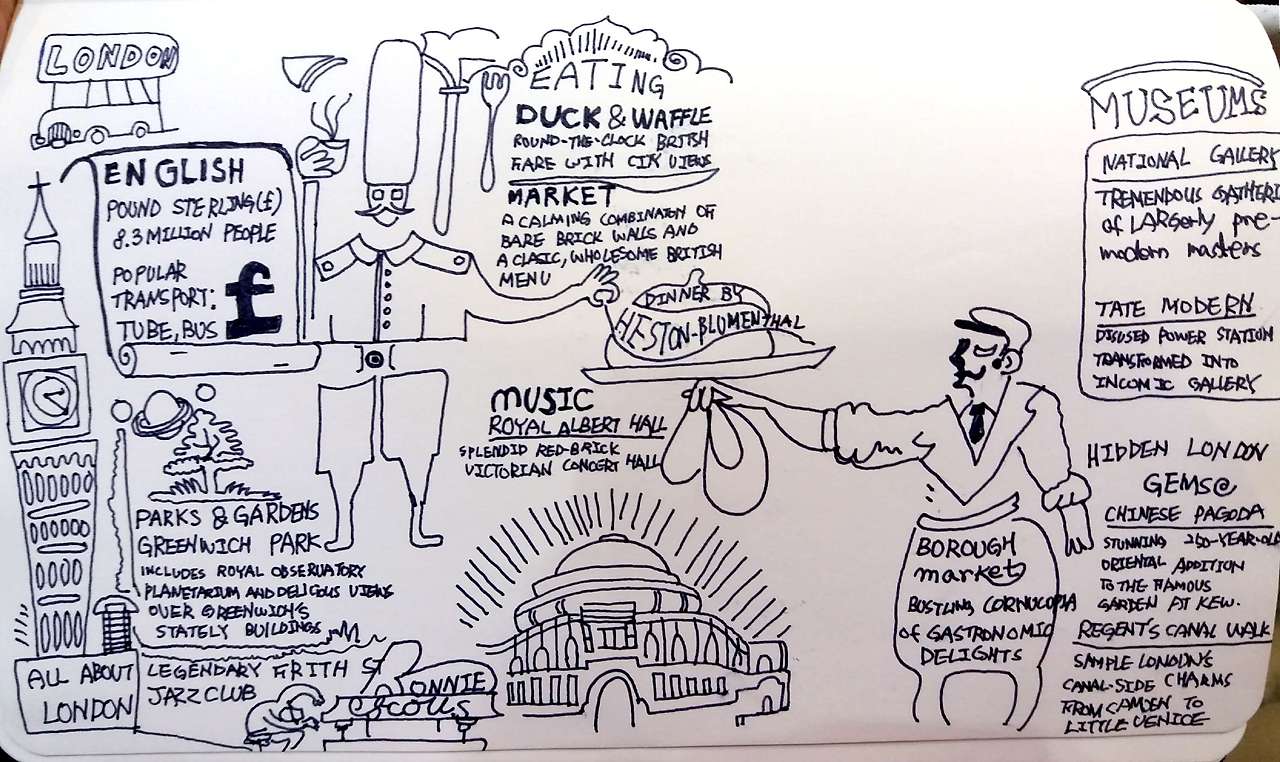 LONDON
ENGLISH
POUND STERLING(£)
8.3 MILLION PEOPLE
POPULAR
TRANSPORT:
TUBE, BUS
£
PARKS & GARDENS
GREENWICH PARK
INCLUDES ROYAL OBSERVATORY
PLANETARIUM AND DELICIOUS VIEWS
OVER GREENWICH'S
STATELY BUILDINGS
ALL ABOUT
LONDON
LEGENDARY FRITH ST
JAZZ CLUB
RONNIE
SCOTTS
EATING
DUCK & WAFFLE
ROUND-THE-CLOCK BRITISH
FARE WITH CITY VIEWS
MARKET
A CALMING COMBINATION OF
BARE BRICK WALLS AND
A CLASIC, WHOLESOME BRITISH
MENU
DINNER BY
HESTON-BLUMENTHAL
MUSIC
ROYAL ALBERT HALL
SPLENDID RED-BRICK
VICTORIAN CONCERT HALL
BOROUGH
market
BUSTLING CORNUCOPIA
of GASTRONOMIC
DELIGHTS
MUSEUMS
NATIONAL GALLERY
TREMENDOUS GATHERI
of LARGERLY pre-
modern masters
TATE MODERN
DISUSED POWER STATION
TRANSFORMED INTO
INCOMIC GALLERY
HIDDEN LONDON
GEMS@
CHINESE PAGODA
STUNNING 250-YEAR-OLD
ORIENTAL ADDITION
TO THE FAMOUS
GARDEN AT KEW.
REGENT'S CANAL WALK
SAMPLE LONDON'S
CANAL-SIDE CHARMS
FROM CAMDEN TO
LITTLE VENICE